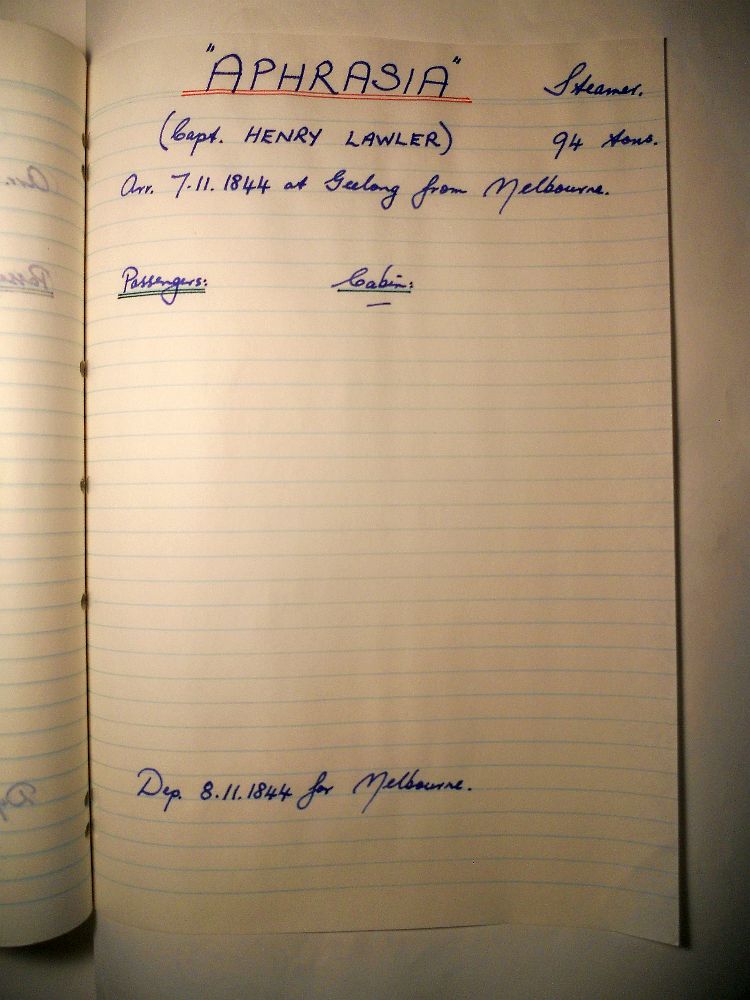 "APHRASIA" Steamer.
(Capt. HENRY LAWLER) 94 tons.
Arr. 7.11.1844 at Geelong from Melbourne.
Passengers: Cabin:
—
Dep. 8.11.1844 for Melbourne.